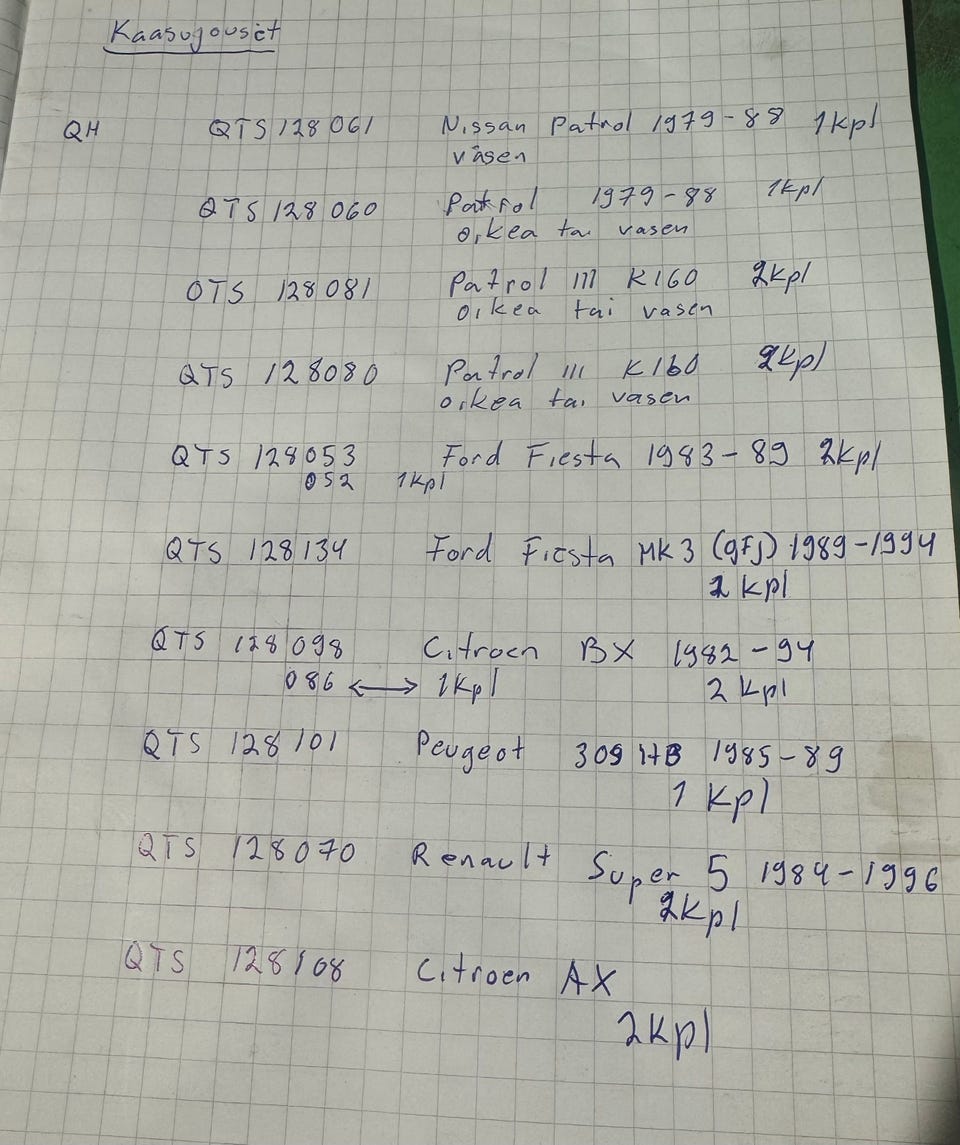 Kaasujouset
QH QTS 128 061 Nissan Patrol 1979-88 1kpl
vasen
QTS 128 060 Patrol 1979-88 1kpl
oikea tai vasen
QTS 128 081 Patrol III K160 2kpl
oikea tai vasen
QTS 128080 Patrol III K160 2kpl
oikea tai vasen
QTS 128053 Ford Fiesta 1983-89 2kpl
052 1kpl
QTS 128134 Ford Fiesta MK3 (gfj) 1989-1994
2 kpl
QTS 128 098 Citroen BX 1982-94
086 ↔ 1kpl 2 kpl
QTS 128 101 Peugeot 309 HB 1985-89
1 kpl
QTS 128070 Renault Super 5 1984-1996
2kpl
QTS 128108 Citroen AX
2kpl